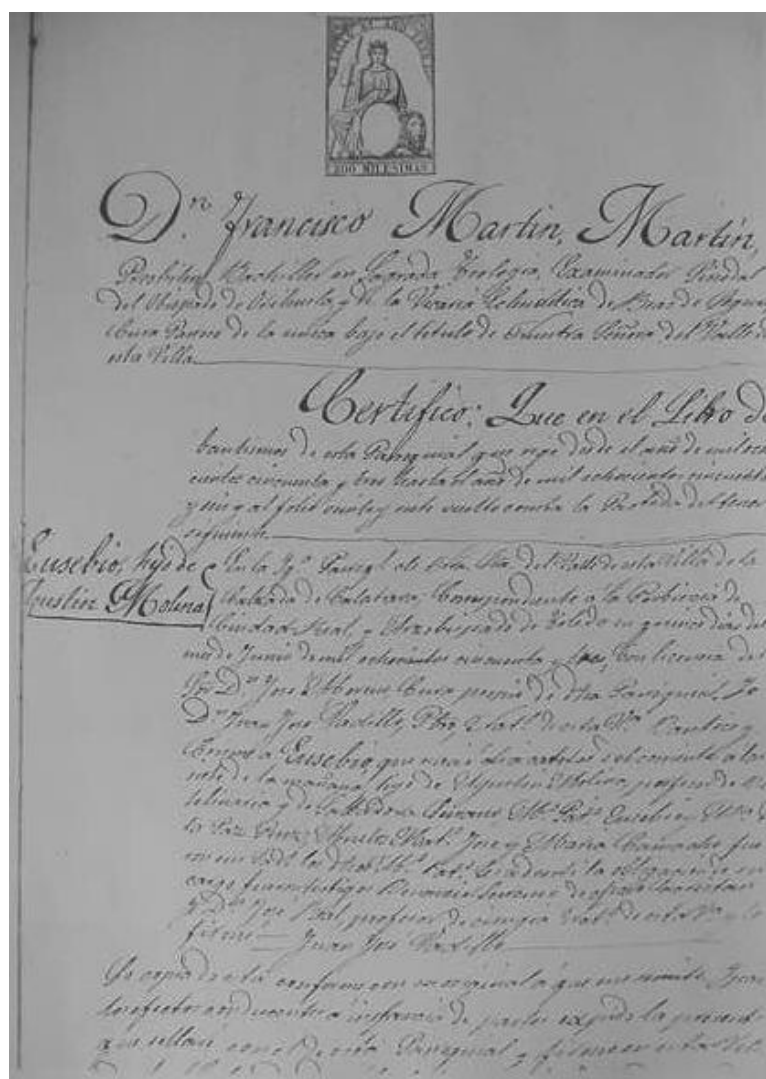 200 MILESIMAS
Dn. Francisco Martin, Martin,
Presbitero Bachiller en Sagrada Teologia, Examinador Sinodal
del Obispado de Orihuela, y de la Vicaria de
Cura Parroco de la unica bajo el titulo de Nuestra Señora del Valle de
esta Villa
Certifico: Que en el Libro de
bautismos de esta Parroquial que rige desde el año de mil ocho
cientos cincuenta y tres hasta el año de mil ochocientos cincuenta
y seis y al folio veinte y siete vuelto consta la Partida del tenor
siguiente
Eusebio, hijo de
Agustin Molina
En la Yga. Parroql. de Ntra. Sra. del Valle de esta Villa de la
Calzada de Calatrava, Correspondiente a la Probincia de
Ciudad-Real, y Arzobispado de Toledo en quince dias del
mes de Junio de mil ochocientos cincuenta y tres, con licencia del
Sor. Dn. Jose Moreno Cura propio de dha Parroquial, Yo
Dn. Juan Jose Vadillo, Pbro, Natl. de esta Va. Bautice y
a Eusebio, que nacio dia catorce del corriente a las
siete de la mañana, hijo de Agustin Molina, profesor de
y de Serrano Ms. Pats. Eusebio y
la Paz Mats. Jose y Maria fue
obligacion de su
cargo fueron testigos Serrano de
y Dn. Jose profesor de cirugia Natl. de esta Va. y lo
firmé = Juan Jose Vadillo
La copiada está conforme con su original a que me remito. Y para
los efectos conducentes a instancia de parte expido la presente
que sellaré con el de esta Parroquial y firmo en esta Villa